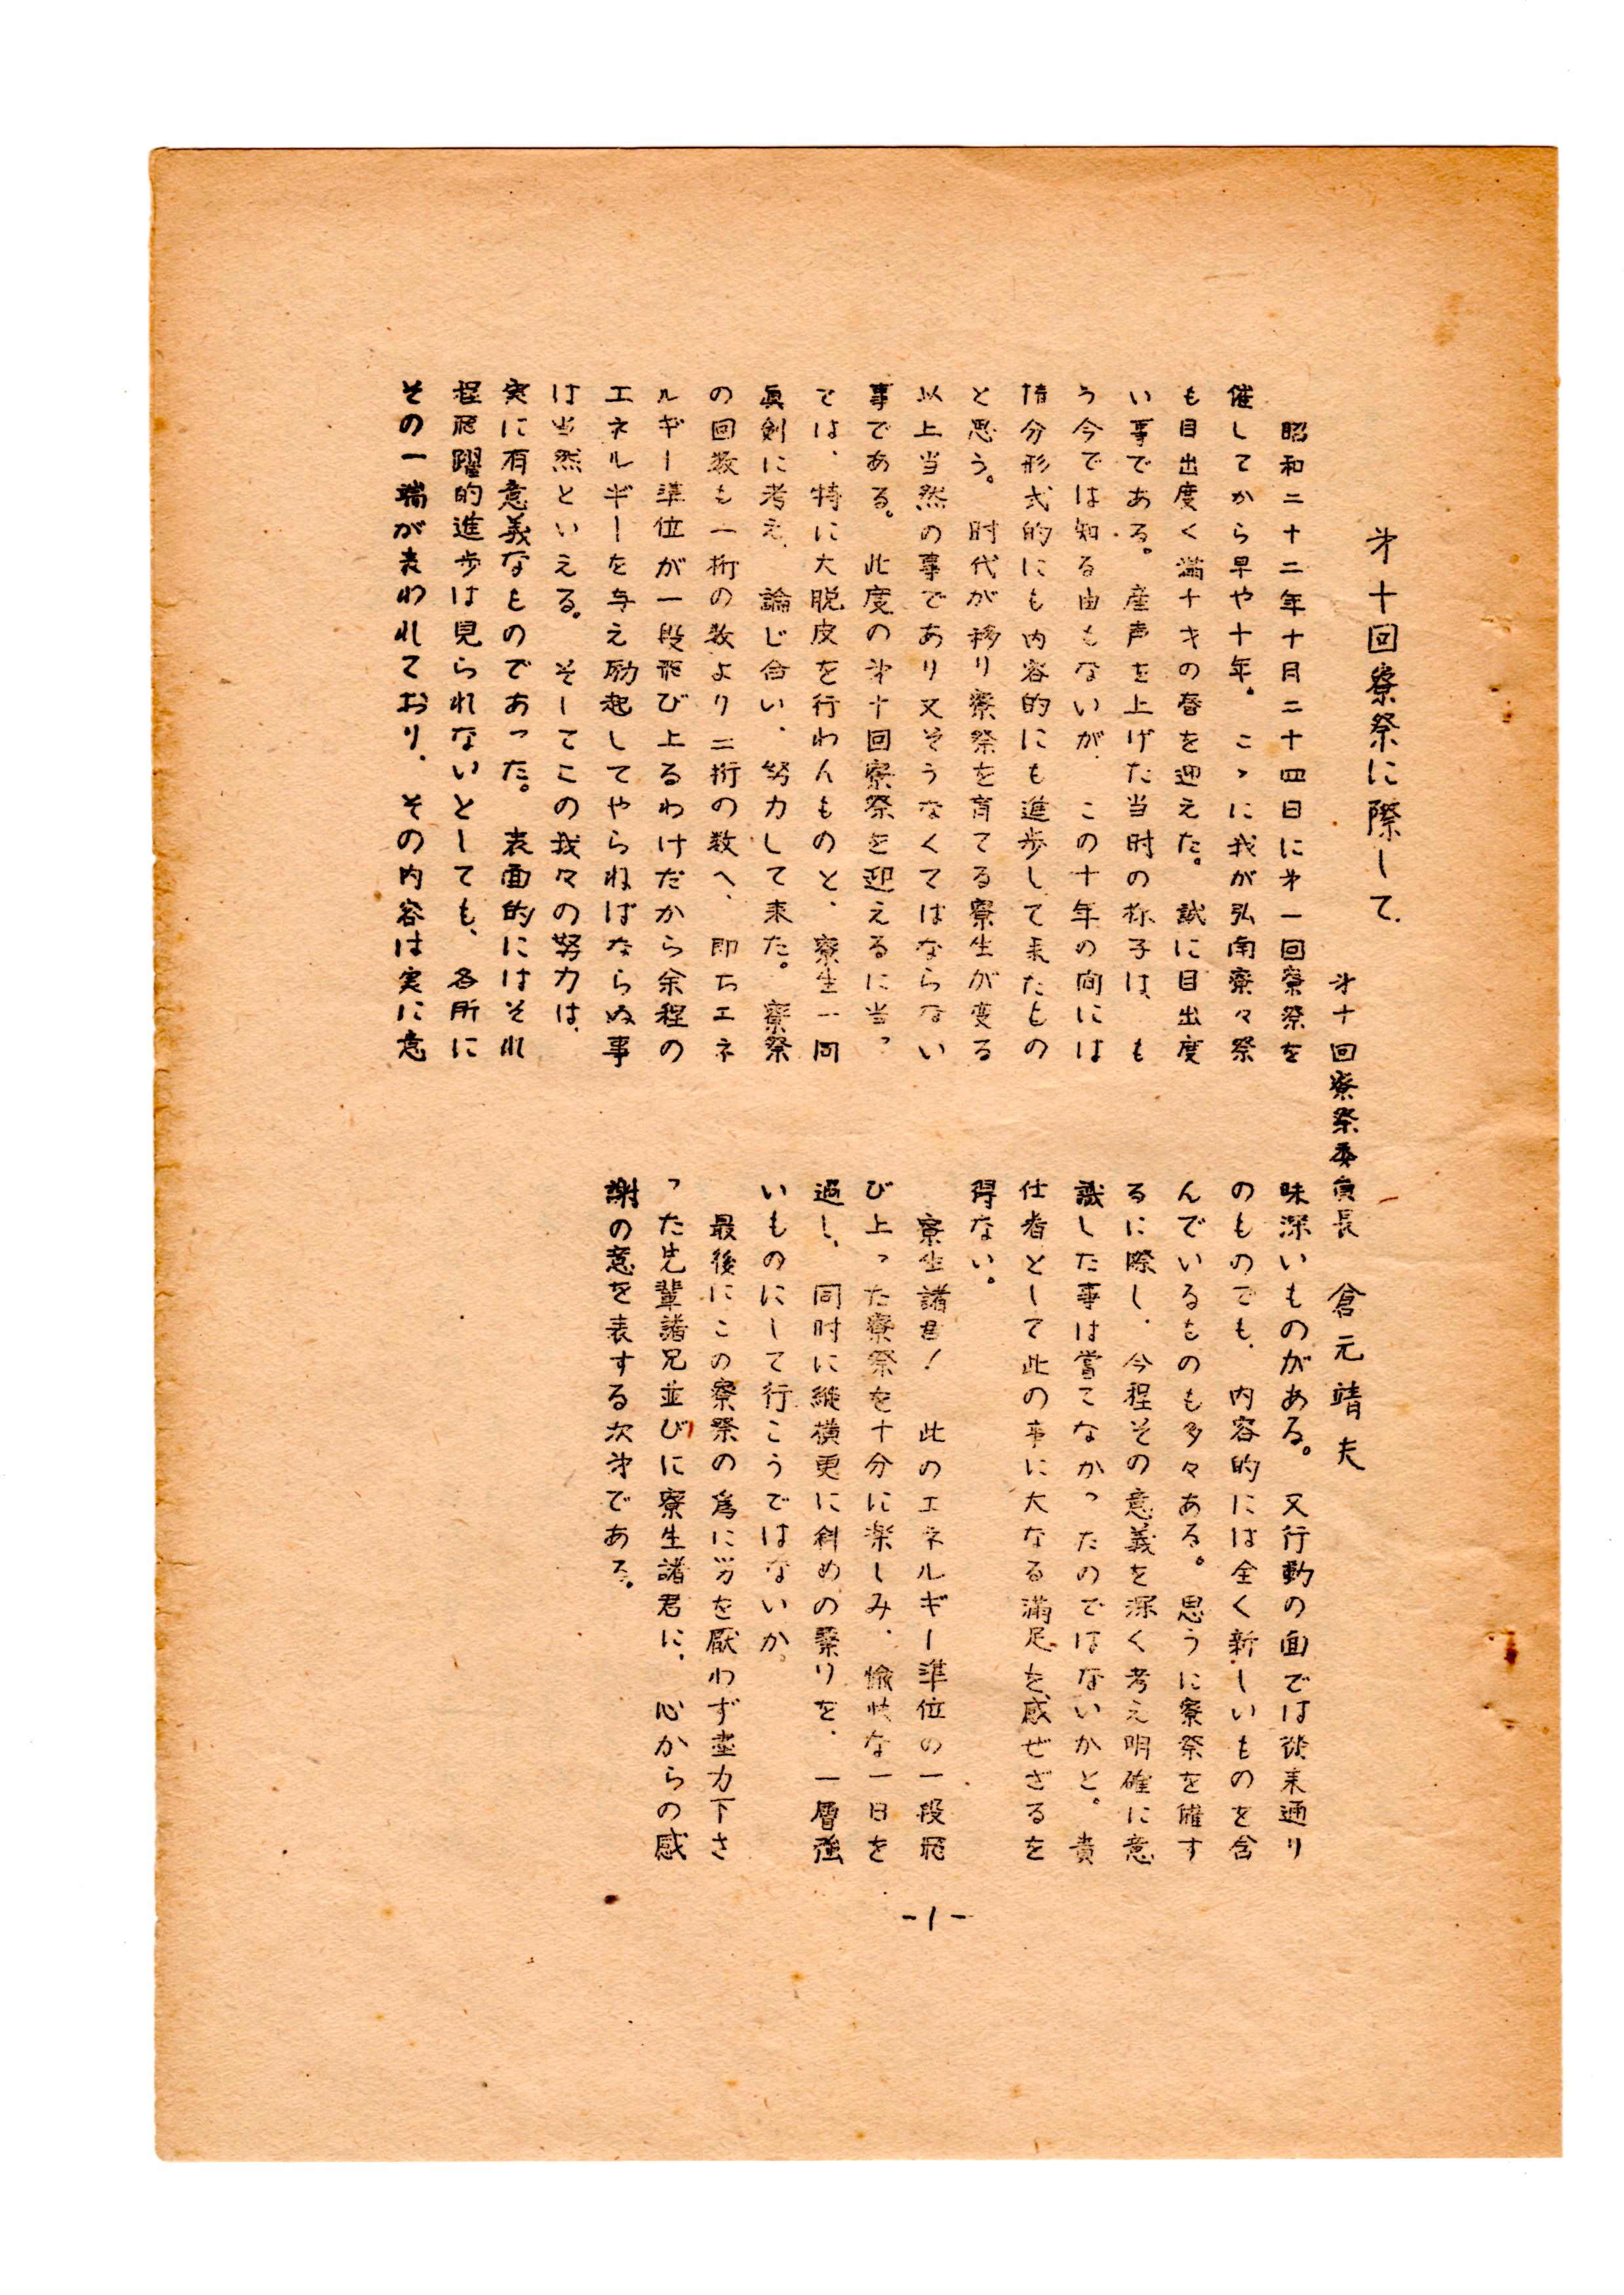 才十回寮祭に際して、
才十回寮祭委員長　倉元靖夫
昭和二十二年十月二十四日に才一回寮祭を
催してから早や十年。こゝに我が弘南寮々祭
も目出度く満十才の春を迎えた。誠に目出度
い事である。産声を上げた当时の様子は、も
う今では知る由もないが、この十年の间には
随分形式的にも内容的にも進歩して来たもの
と思う。时代が移り寮祭を育てる寮生が変る
以上当然の事であり又そうなくてはならない
事である。此度の才十回寮祭を迎えるに当っ
ては、特に大脱皮を行わんものと、寮生一同
眞剣に考え、論じ合い、努力して来た。寮祭
の回数も一桁の数より二桁の数へ、即ちエネ
ルギー準位が一段飛び上るわけだから余程の
エネルギーを与え励起してやらねばならぬ事
は当然といえる。そしてこの我々の努力は、
実に有意義なものであった。表面的にはそれ
程飛躍的進歩は見られないとしても、各所に
その一端が表われており、その内容は実に意
味深いものがある。又行動の面では従来通り
のものでも、内容的には全く新しいものを含
んでいるものも多々ある。思うに寮祭を催す
るに際し、今程その意義を深く考え明確に意
識した事は嘗てなかったのではないかと。責
任者として此の事に大なる満足を感ぜざるを
得ない。
寮生諸君！　此のエネルギー準位の一段飛
び上った寮祭を十分に楽しみ、愉快な一日を
過し、同时に縦横更に斜めの繋りを、一層強
いものにして行こうではないか。
最後にこの寮祭の爲に労を厭わず盡力下さ
った先輩諸兄並びに寮生諸君に、心からの感
謝の意を表する次才である。
-1-